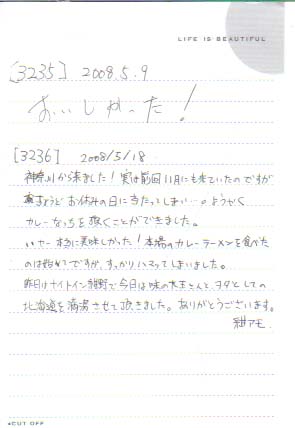 LIFE IS BEAUTIFUL
[3235] 2008.5.9
おいしかった!
[3236] 2008/5/18
神奈川から来ました!実は前回11月にも来ていたのですが
ちょうどお休みの日に当たってしまい…。ようやく
カレーなっちを頂くことができました。
いやー本当に美味しかった!本場のカレーラーメンを食べた
のは始めてですが、すっかりハマってしまいました。
昨日はナイトイン
で今日は味の大王さんと、ヲタとしての
北海道を満喫させて頂きました。ありがとうございます。
紺アモ
CUT OFF